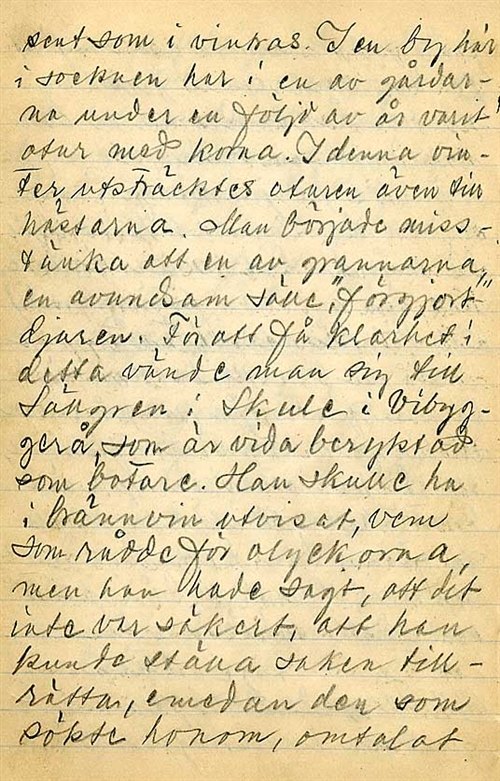 sent som i vintras. I en by här
i socknen har i en av gårdar-
na under en följd av år varit
otur med korna. I denna vin-
ter utsträcktes oturen även till
hästarna. Man började miss-
tänka att en av grannarna,
en avundsam sälle, "förgjort"
djuren. För att få klarhet i
detta vände man sig till
Sällgren i Skule i Vibyg-
gerå, som är vida beryktad
som botare. Han skulle ha
i brännvin utvisat, vem
som rådde för olyckorna,
men han hade sagt, att det
inte var säkert, att han
kunde ställa saken till-
rätta, emedan den som
sökte honom, omtalat